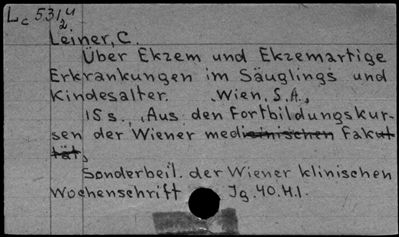 Lc 531/4
2
Leiner, C.
Über Ekzem und Ekzemartige
Erkrankungen im Säuglings und
Kindesalter. Wien, S.A.,
15 s., (Aus: den Fortbildungskur-
sen der Wiener medizinischen Fakul
tät)
Sonderbeil. der Wiener klinischen
Wochenschrift Jg. 40. H.1.